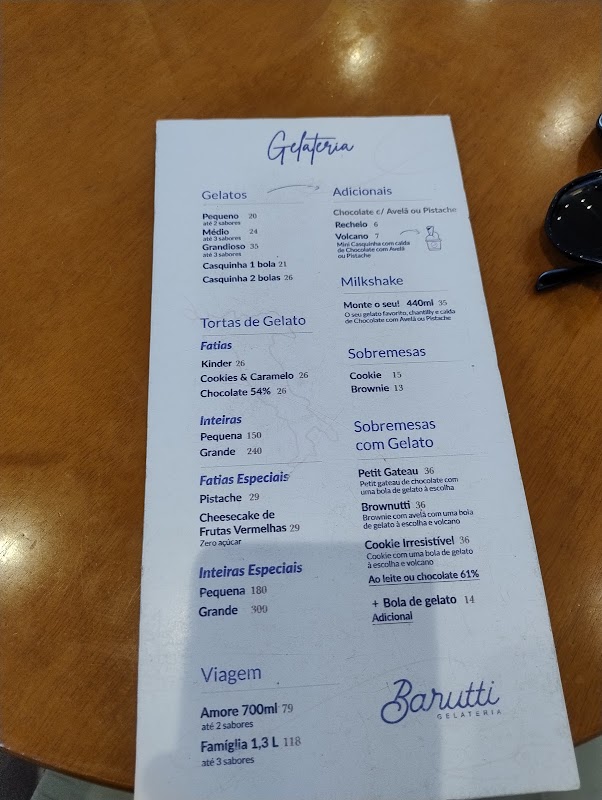 Gelateria
Gelatos
Pequeno 20
até 2 sabores
Médio 24
até 3 sabores
Grandioso 35
até 3 sabores
Casquinha 1 bola 21
Casquinha 2 bolas 26
Tortas de Gelato
Fatias
Kinder 26
Cookies & Caramelo 26
Chocolate 54% 26
Inteiras
Pequena 150
Grande 240
Fatias Especiais
Pistache 29
Cheesecake de
Frutas Vermelhas 29
Zero açúcar
Inteiras Especiais
Pequena 180
Grande 300
Viagem
Amore 700ml 79
até 2 sabores
Famíglia 1,3 L 118
até 3 sabores
Adicionais
Chocolate c/ Avelã ou Pistache
Recheio 6
Volcano 7
Mini Casquinha com calda
de Chocolate com Avelã
ou Pistache
Milkshake
Monte o seu! 440ml 35
O seu gelato favorito, chantilly e calda
de Chocolate com Avelã ou Pistache
Sobremesas
Cookie 15
Brownie 13
Sobremesas
com Gelato
Petit Gateau 36
Petit gateau de chocolate com
uma bola de gelato à escolha
Brownutti 36
Brownie com avelã com uma bola
de gelato à escolha e volcano
Cookie Irresistível 36
Cookie com uma bola de gelato
à escolha e volcano
Ao leite ou chocolate 61%
+ Bola de gelato 14
Adicional
Barutti
GELATERIA